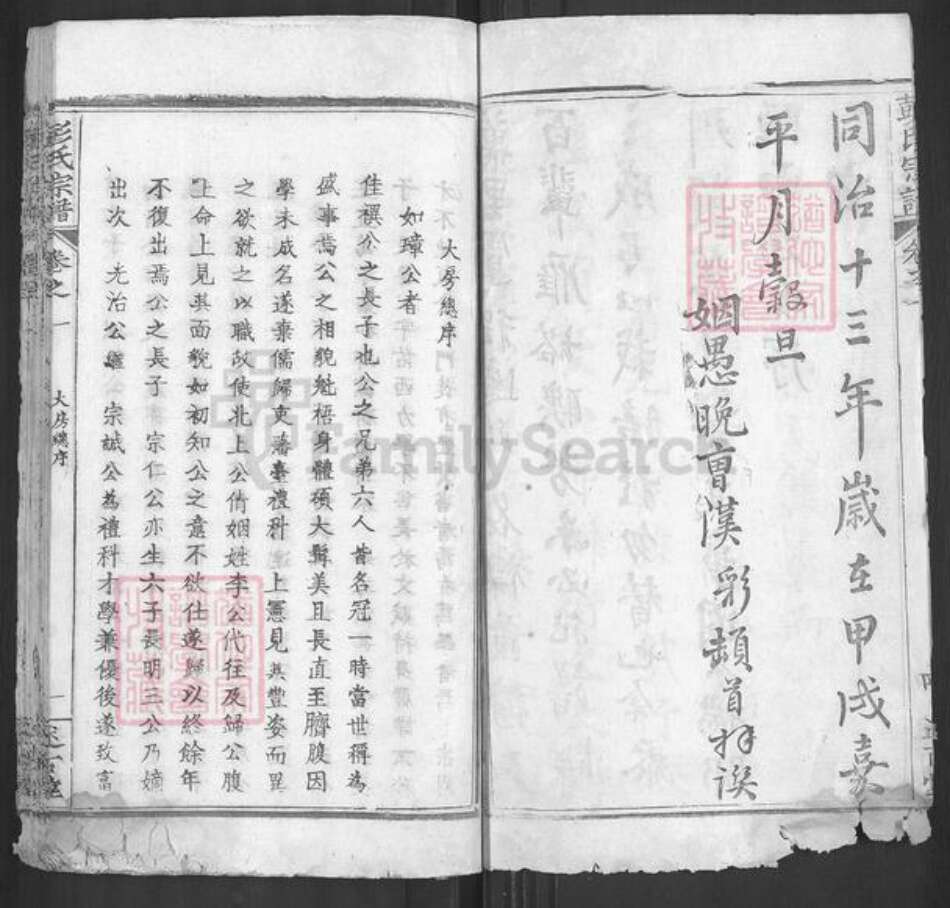 同治十三年歲在甲戌嘉
平月穀旦
姻愚晚曹漢彩頓首拜譔
彭氏宗譜
卷之一
大房總序
如璋公者
佳祺公之長子也公之兄弟六人皆名冠一時當世稱為
盛事焉公之相貌魁梧身體碩大鬍美且長直至臍腹因
學未成名遂棄儒歸吏藩臺禮科 上憲見其豐姿而異
之欲就之以職故使北上公倩姻姓李公代往及歸公腹
上命上見其面貌如初知公之意不欲仕遂歸以終餘年
不復出焉公之長子 宗仁公亦生六子長明三公乃嫡
出次 光治公繼 宗誠公為禮科才學兼優後遂致富
彭氏宗譜
卷之一
大房總序
一
述古堂
FamilySearch